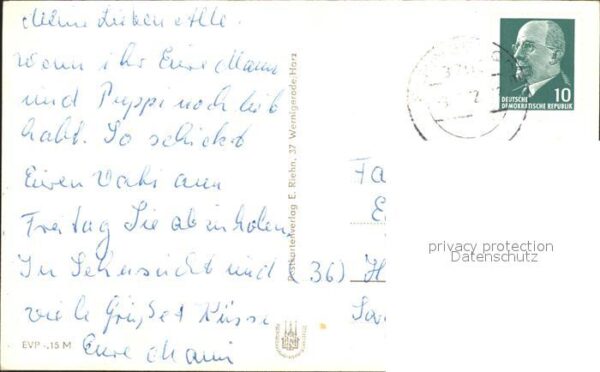 Meine Lieben Alle.
wenn ihr Eure Mami
und Puppi noch lieb
habt. So schickt
Euren Vati am
Freitag Sie abzuholen
In Sehnsucht und
viele Grüße + Küsse
Eure Mami
EVP -,15 M
Postkartenverlag E. Riehn, 37 Wernigerode-Harz
10
DEUTSCHE
DEMOKRATISCHE REPUBLIK
(36) H
privacy protection
Datenschutz